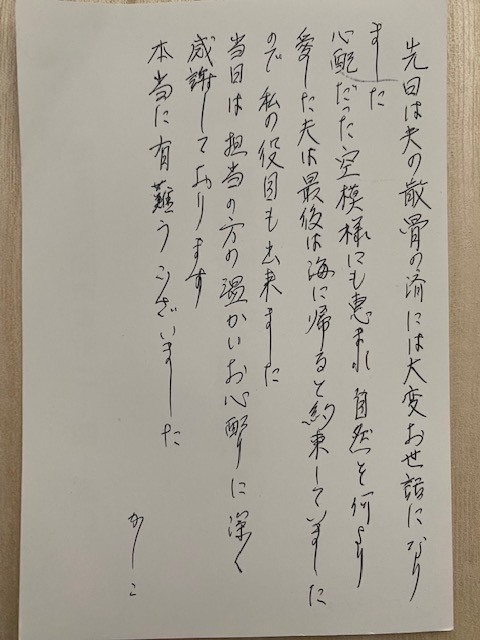 先日は夫の散骨の済には大変お世話になり
ました
心配だった空模様にも恵まれ 自然を何より
愛した夫は最後は海に帰ると約束していました
ので 私の役目も出来ました
当日は担当の方の温かいお心配りに深く
感謝しております
本当に有難うございました
かしこ